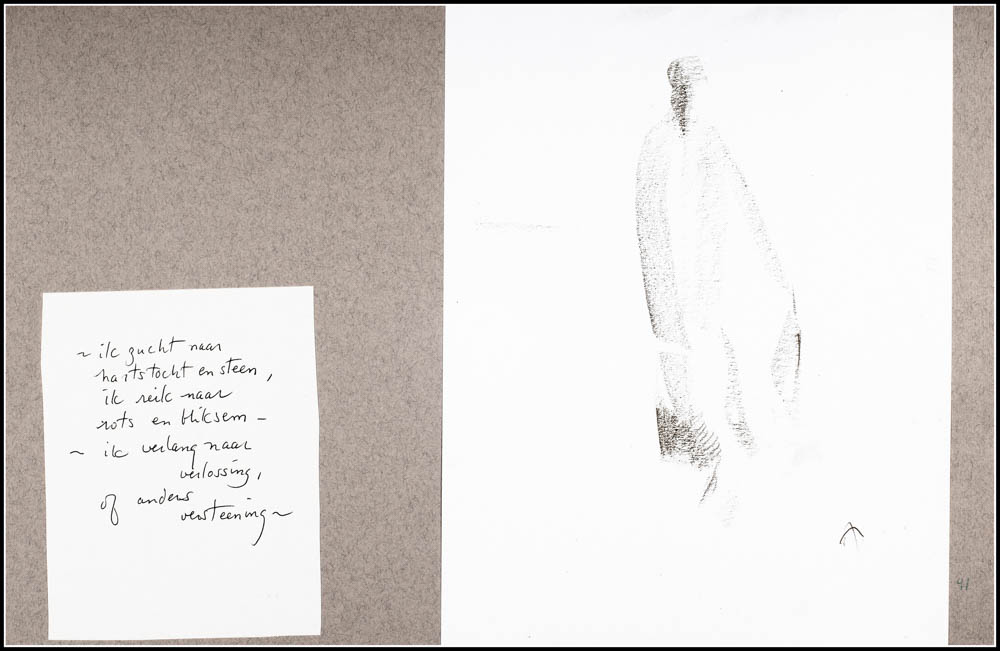 ~ ik zucht naar
hartstocht en steen,
ik reik naar
rots en bliksem –
~ ik verlang naar
verlossing,
of anders
versteening ~
41